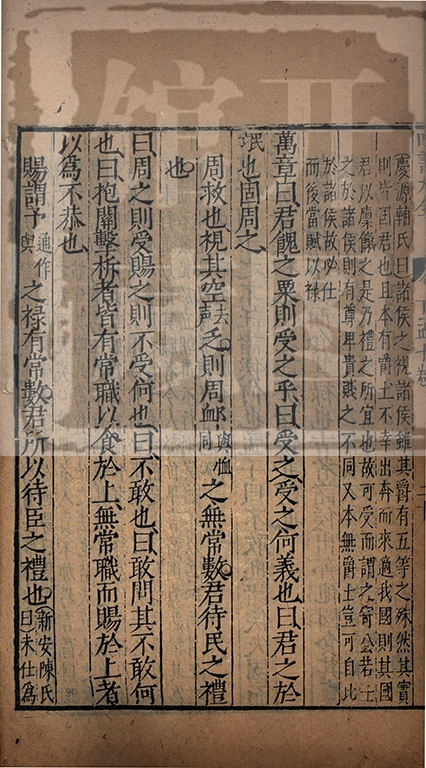 慶源輔氏曰諸侯之視諸侯雖其爵有五等之殊然其實
則皆国君也且本有爵土不幸出奔而來適我國則其國
君以廩餼之是乃禮之所宜也故可受而謂之寄公若士
之於諸侯則有尊卑貴賤之不同又本無爵土豈可自比
於諸侯故必仕
而後當賦以禄
萬章曰君餽之粟則受之乎曰受之受之何義也曰君之於
氓也固周之
周救也視其空去聲乏則周卹與恤同之無常數君待民之禮
也
曰周之則受賜之則不受何也曰不敢也曰敢問其不敢何
也曰抱關擊柝者皆有常職以食於上無常職而賜於上者
以為不恭也
賜謂予通作與之禄有常數君所以待臣之禮也新安陳氏
曰未仕為